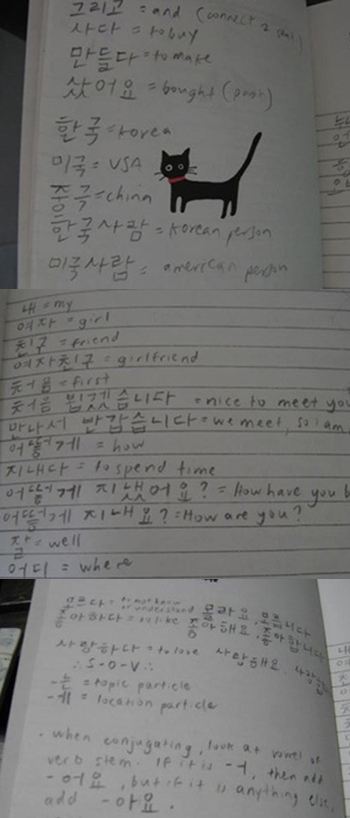 그리고 = and (connect 2
사다 = to buy
만들다 = to make
샀어요 = bought (past)
한국 = korea
미국 = USA
중국 = china
한국사람 = korean person
미국사람 = american person
내 = my
여자 = girl
친구 = friend
여자친구 = girlfriend
처음 = first
처음 뵙겠습니다 = nice to meet you
만나서 반갑습니다 = we meet, so i am
어떻게 = how
지내다 = to spend time
어떻게 지냈어요? = How have you b
어떻게 지내요? = How are you?
잘 = well
어디 = where
모르다 = to not know or understand 몰라요, 모릅니다
좋아하다 = to like 좋아해요, 좋아합니다
사랑하다 = to love 사랑해요, 사랑합
∴ S-O-V ∴
-는 = topic particle
-에 = location particle
- when conjugating, look at vowel of
verb stem. If it is -ㅓ, then add
-어요, but if it is anything else,
add -아요.